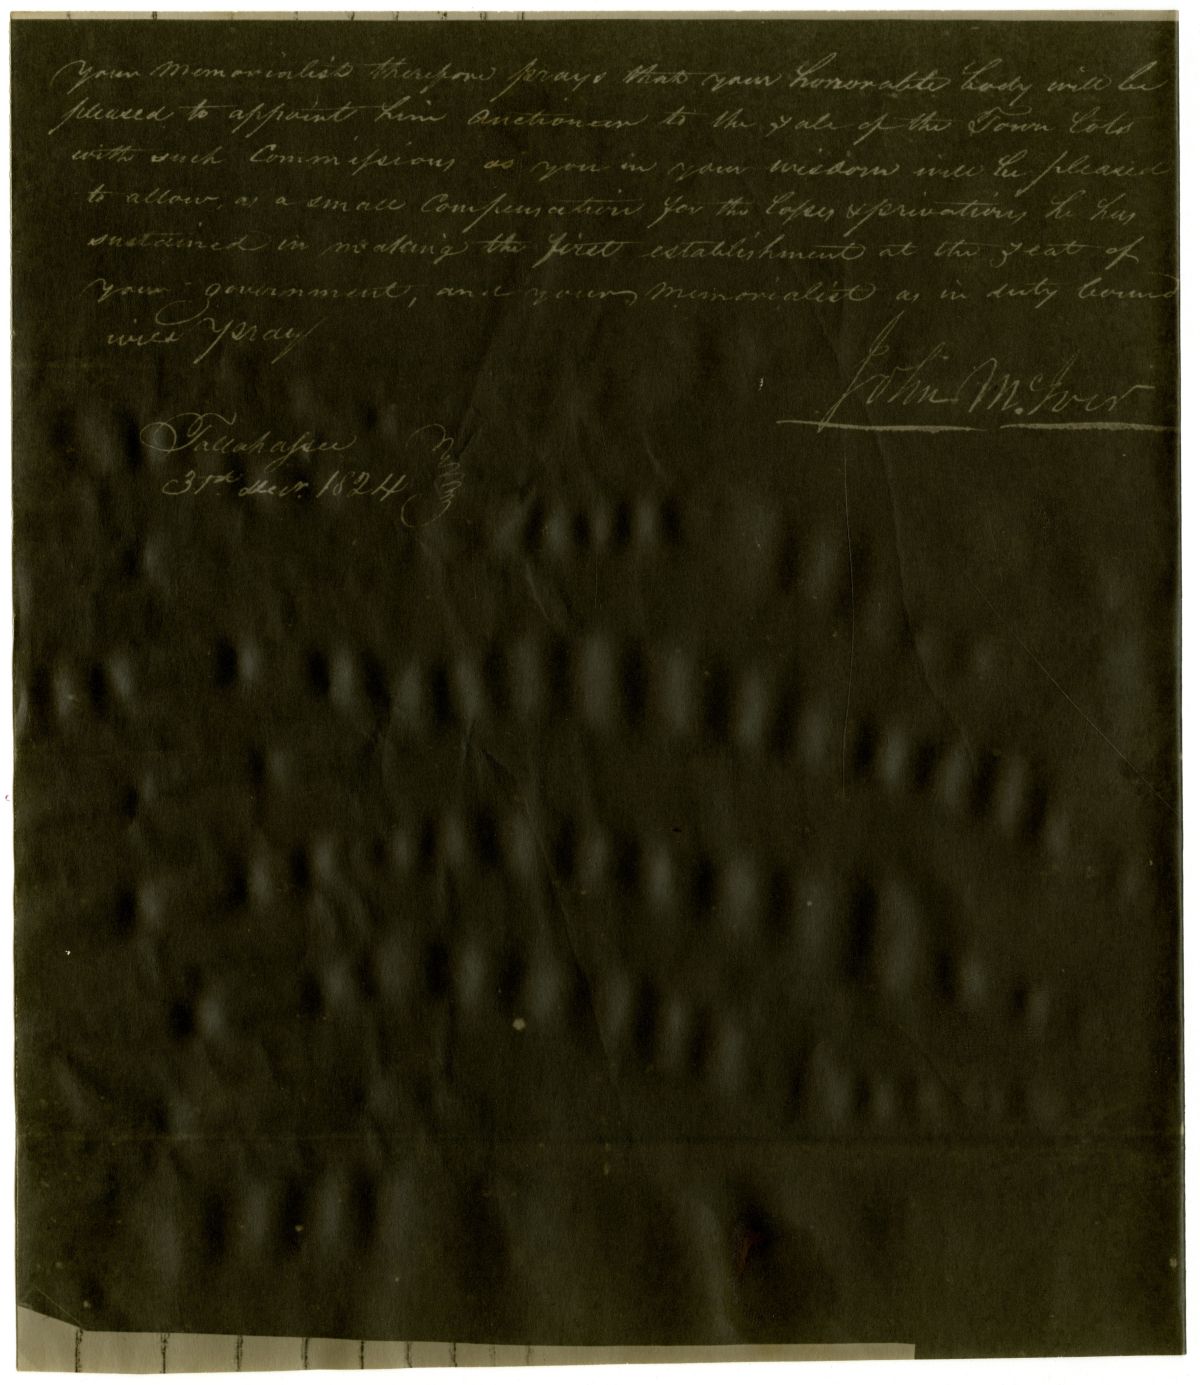 your Memorialist therefore prays that your honorable body will be
pleased to appoint him Auctioneer to the Sale of the Town Lots
with such Commissions as you in your wisdom will be pleased
to allow, as a small Compensation for the losses & privations he has
sustained in making the first establishment at the Seat of
your government, and your Memorialist as in duty bound
will pray
John McIver
Tallahassee
31st Decr. 1824